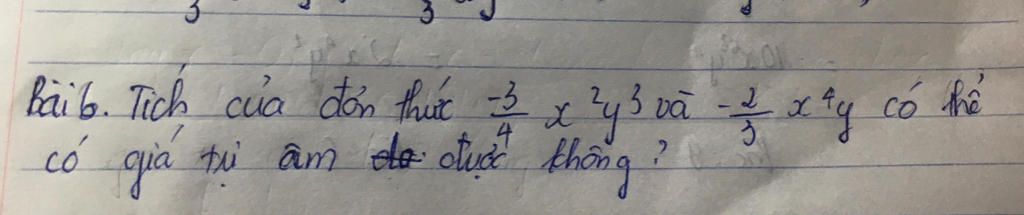 Bài 6. Tích của đơn thức -3/4 x²y³ và -2/3 x⁴y có thể
có giá trị âm được không?